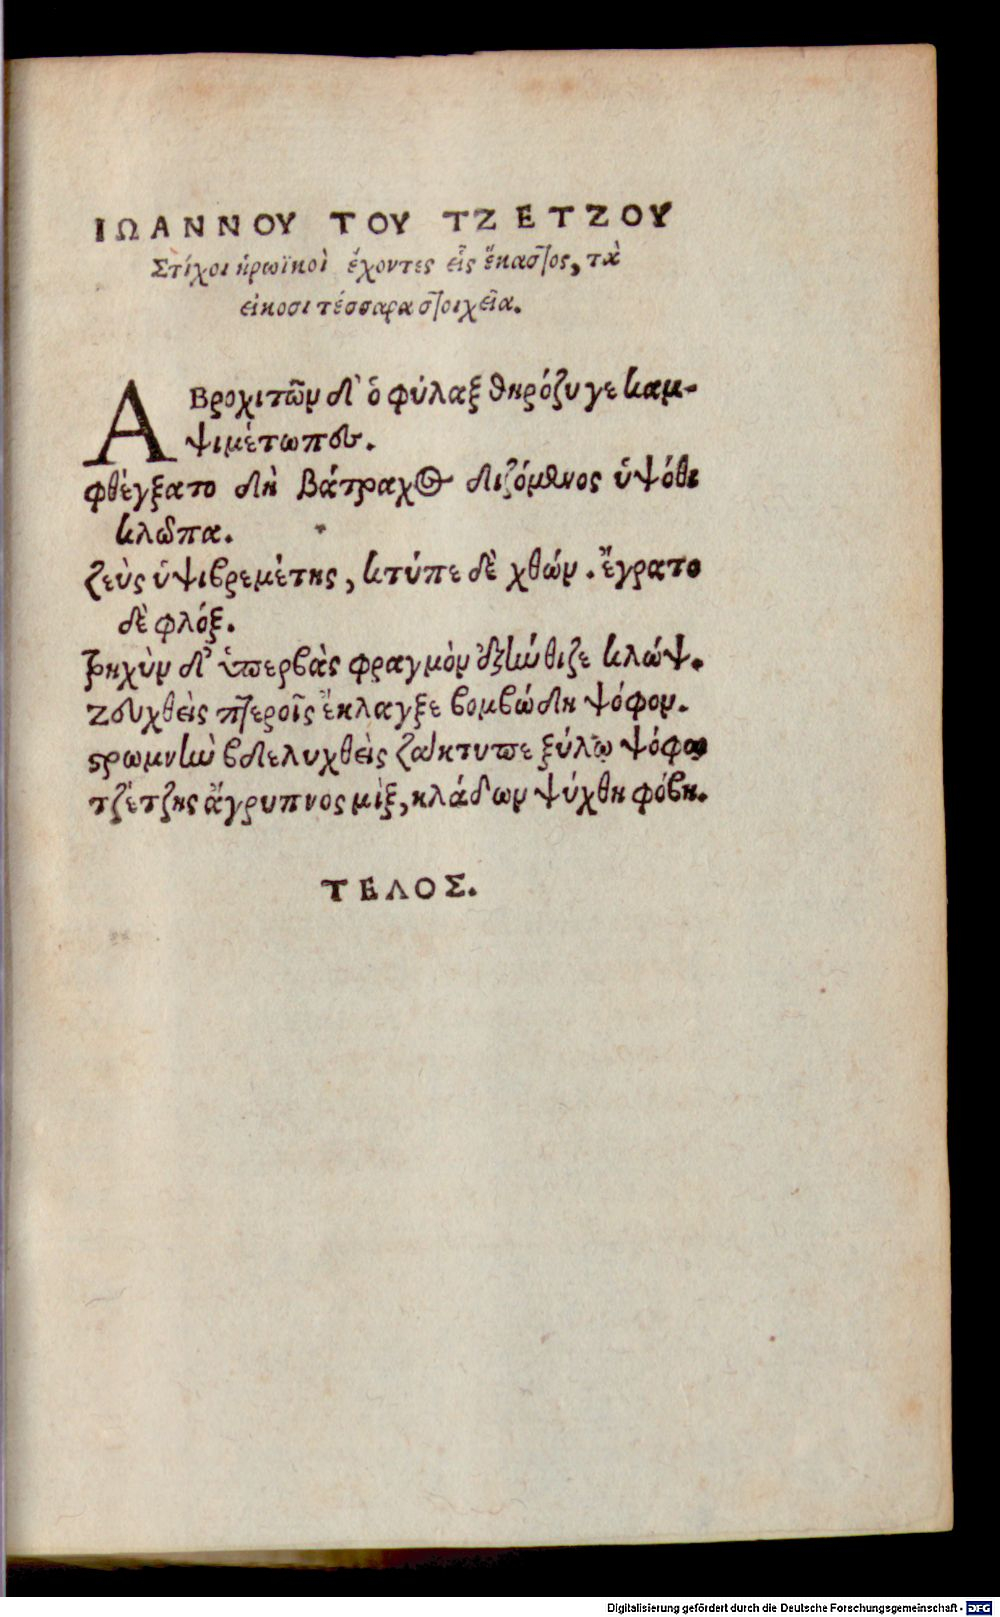 ΙΩΑΝΝΟΥ ΤΟΥ ΤΖΕΤΖΟΥ
Στίχοι ἡρωϊκοὶ ἔχοντες εἷς ἕκαστος, τὰ
εἰκοσι τέσσαρα στοιχεῖα.
ΑΒροχιτῶν δ' ὁ φύλαξ θηρόζυγε καμ-
ψιμέτωπου.
φθέγξατο δὴ βάτραχος διζόμενος ὑψόθι
κλωπα.
ζεὺς ὑψιβρεμέτης, κτύπε δὲ χθών. ἔγρατο
δὲ φλόξ.
τρηχὺν δ' ὑπερβὰς φραγμὸν ἐξηύθιζε κλώψ.
Ζουχθεὶς πτεροῖς ἔκλαγξε βομβώδη ψόφον.
στρωμνὴν βδελυχθεὶς ζακτυπε ξύλῳ ψόφῳ
τζέτζης ἄγρυπνος μὶξ, κλάδων ψύχθη φόβη.
ΤΕΛΟΣ.
Digitalisierung gefördert durch die Deutsche Forschungsgemeinschaft - DFG